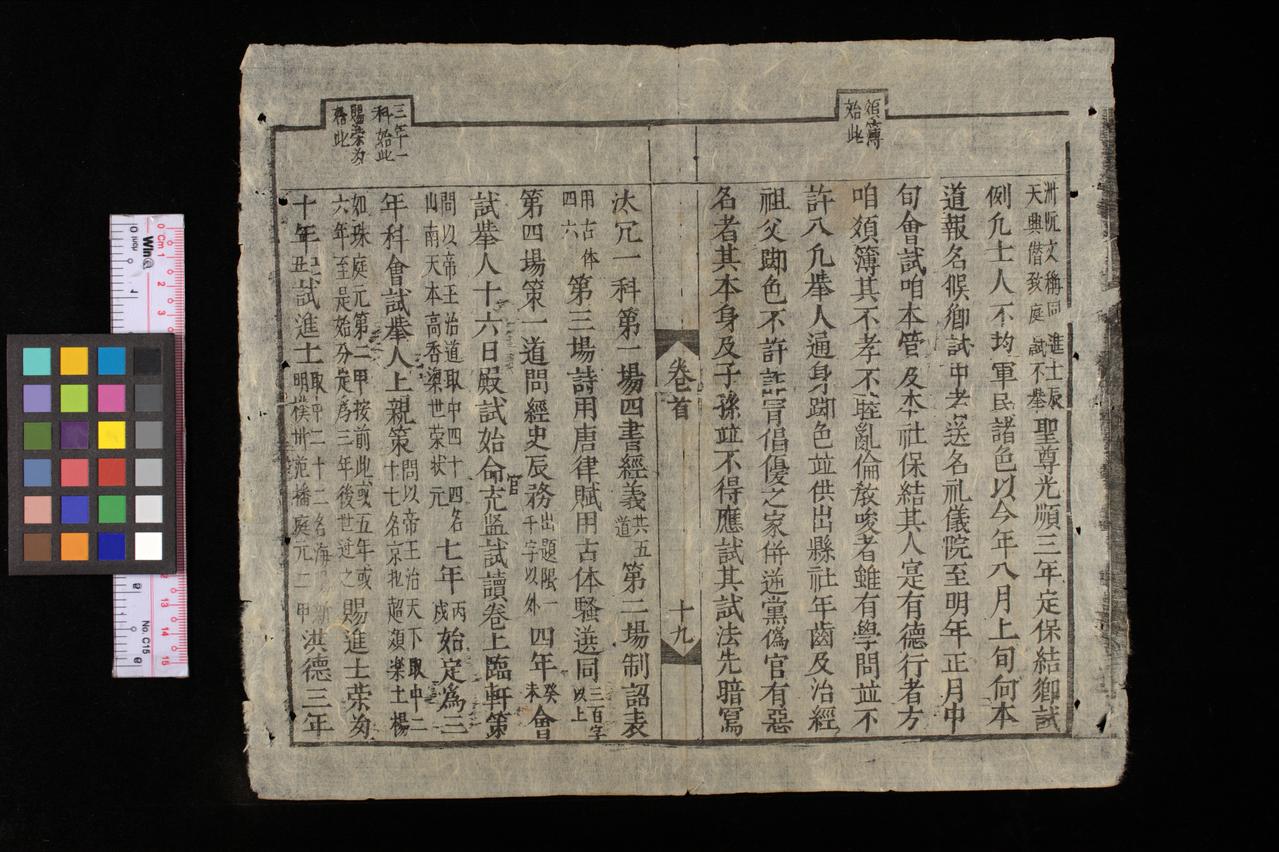 須簿
始此
州阮文稱同進士辰
天興僭致庭試不舉聖尊光順三年定保結鄉試
例凢士人不均軍民諸色以今年八月上旬何本
道報名候鄉試中者送名礼儀院至明年正月中
旬會試咱本管及本社保結其人寔有德行者方
咱湏簿其不孝不睦亂倫教唆者雖有學問並不
許入凢舉人通身脚色並供出縣社年齒及治經
祖父脚色不許詐冐倡優之家併逆黨僞官有惡
名者其本身及子孫並不得應試其試法先暗寫
卷首
十九
三年一
科始此
賜榮為
始此
汰冗一科第一場四書經義共五道第二場制詔表
用古体四六第三場詩用唐律賦用古体騷選同三百字以上
第四場策一道問經史辰務出題限一千字以外四年癸未會
試舉人十六日殿試始命官充監試讀卷上臨軒策
問以帝王治道取中四十四名山南天本高香梁世荣状元七年丙戌始定為三
年科會試舉人上親策問以帝王治天下取中二十七名京北超類楊
如珠庭元第二甲按前此或五年或六年至是始分定為三年後世近之賜進士荣
十年試進士取中二十二名海陽新明樸州范播庭元二甲洪德三年